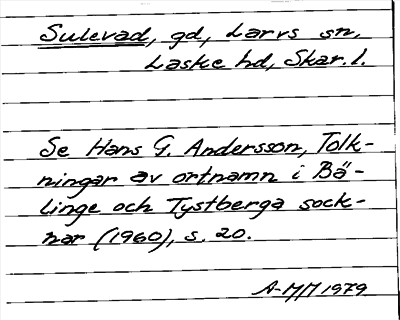 Sulevad, gd, Larvs sn,
Laske hd, Skar. l.
Se Hans G. Andersson, Tolk-
ningar av ortnamn i Bä-
linge och Tystberga sock-
nar (1960), s. 20.
A-MM 1979